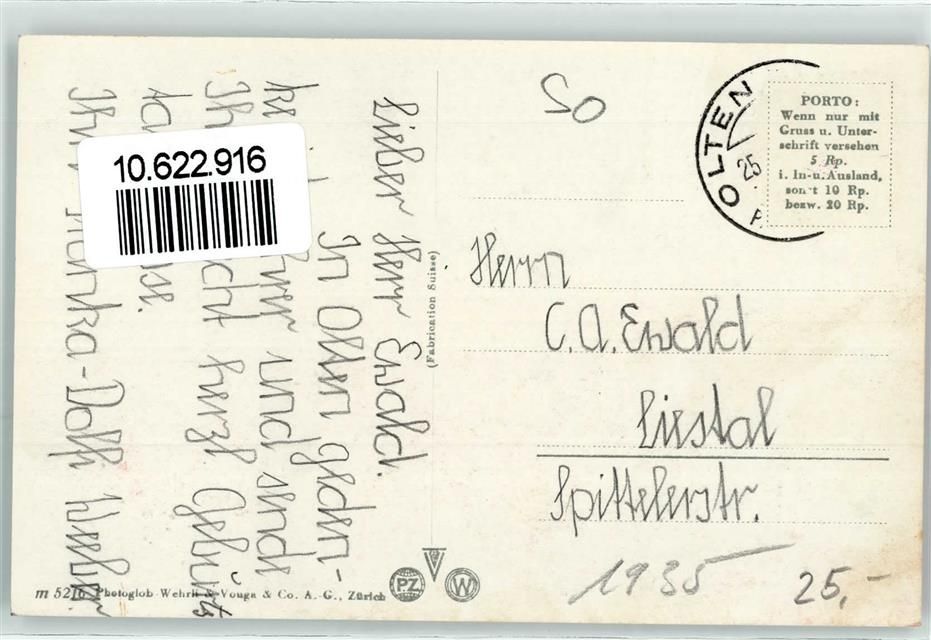 Lieber Herr Ewald.
In Olten geden-
Ihrer und send
herzl Geburts
Monka-Dolfi
10.622.916
(Fabrication Suisse)
OLTEN
25
PORTO:
Wenn nur mit
Gruss u. Unter-
schrift versehen
5 Rp.
i. In-u. Ausland,
sonst 10 Rp.
bezw. 20 Rp.
Herrn
C. A. Ewald
Liestal
Spittelerstr.
1935 25,-
m 5216 Photoglob-Wehrli & Vouga & Co. A.-G., Zürich
PZ
V
W